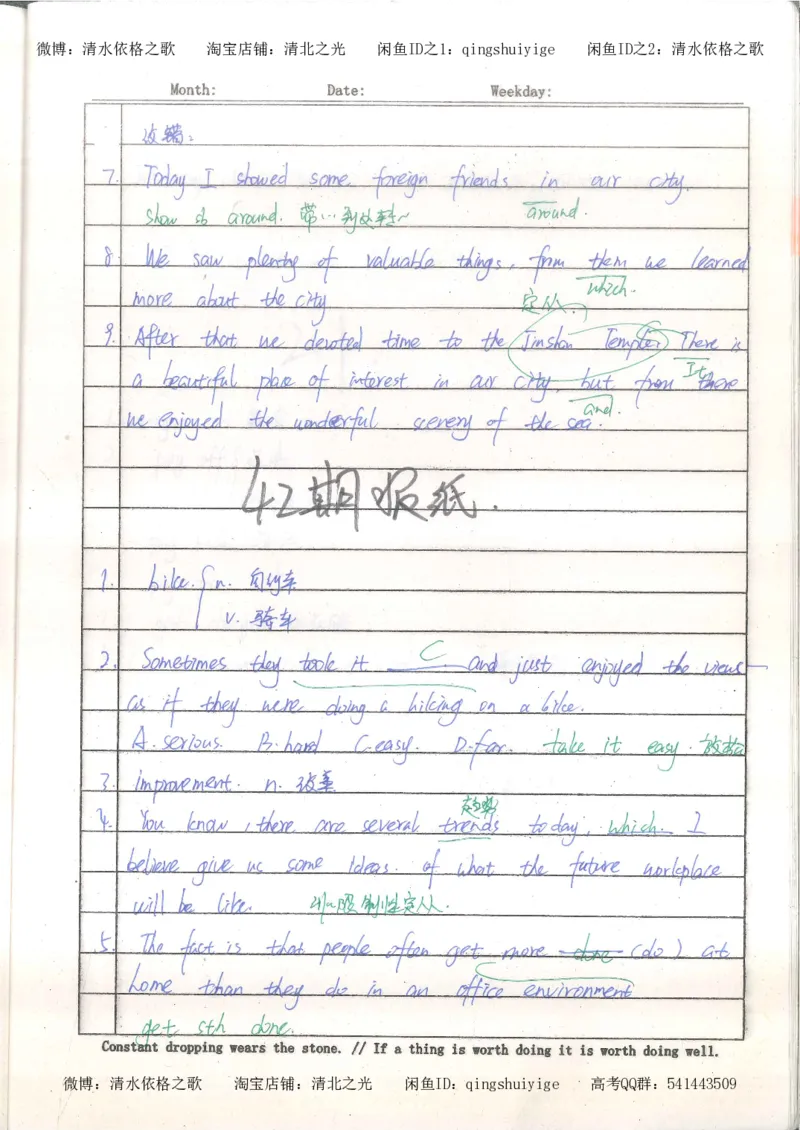 微博：清水依格之歌 淘宝店铺：清北之光 闲鱼ID之1：qingshuiyige 闲鱼ID之2：清水依格之歌
Month: Date: Weekday:
改错：
7. Today I showed some foreign friends in our city.
show sb around. 带…到处转~ around.
8. We saw plenty of valuable things, from them we learned
which.
more about the city 定从
9. After that we devoted time to the Jinshan Temple. There is
It
a beautiful place of interest in our city, but from there
and.
we enjoyed the wonderful scenery of the sea.
42期报纸.
1. bike. { n. 自行车
v. 骑车
2. Sometimes they took it C and just enjoyed the views
as if they were doing a hiking on a bike.
A. serious. B. hard C. easy. D. far. take it easy.
3. improvement. n. 改善
趋势
4. You know, there are several trends today, which I
believe give us some ideas of what the future workplace
will be like. 非限制性定从.
5. The fact is that people often get more done (do) at
home than they do in an office environment
get sth done.
Constant dropping wears the stone. // If a thing is worth doing it is worth doing well.
微博：清水依格之歌 淘宝店铺：清北之光 闲鱼ID：qingshuiyige 高考QQ群：541443509